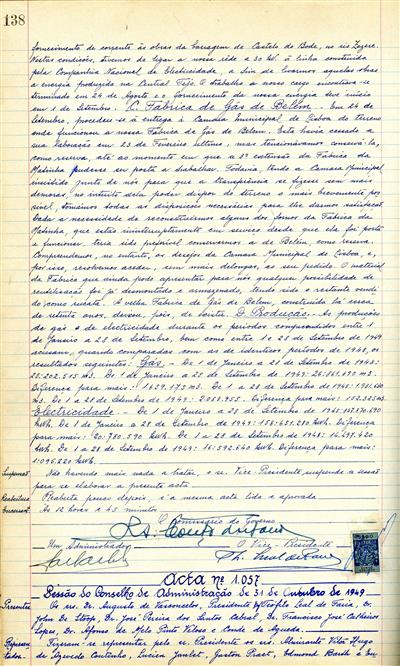 138
fornecimento de corrente às obras da barragem de Castelo do Bode, no rio Zezere.
Nestas condições, tivemos de ligar a nossa rede a 30 kV. à linha construida
pela Companhia Nacional de Electricidade, a fim de levarmos aquelas obras
a energia produzida na Central Tejo. O trabalho a nosso cargo encontrava-se
terminado em 24 de Agosto e o fornecimento da nossa energia teve inicio
em 1 de Setembro. C. Fábrica de Gás de Belém. Em 24 de
Setembro, procedeu-se à entrega à Camara Municipal de Lisboa do terreno
onde funcionou a nossa Fábrica de Gás de Belem. Esta havia cessado a
sua laboração em 23 de Fevereiro ultimo, mas tencionávamos conservá-la,
como reserva, até ao momento em que a 3ª extensão da Fábrica da
Matinha pudesse ser posta a trabalhar. Todavia, tendo a Camara Municipal
insistido junto de nós para que a transferencia se fizesse sem mais
demoras, no intuito de poder dispor do terreno o mais brevemente pos-
sivel, tomámos todas as disposições necessárias para lhe darmos satisfação.
Dada a necessidade de reconstruirmos alguns dos fornos da Fábrica da
Matinha, que estão ininterruptamente em serviço desde que ela foi posta
a funcionar, teria sido preferivel conservarmos a de Belém, como reserva.
Compreendemos, no entanto, os desejos da Camara Municipal de Lisboa e,
por isso, resolvemos aceder, sem mais delongas, ao seu pedido. O material
da Fábrica que ainda pode apresentar para nós qualquer possibilidade de
reutilização foi já desmontado e armazenado, tendo sido o restante vendi-
do como sucata. A velha Fábrica de Gás de Belem, construida há cerca
de setenta anos, deixou, pois, de existir. D. Produção. - As produções
de gás e de electricidade durante os periodos compreendidos entre 1
de Janeiro a 28 de Setembro, bem como entre 1 e 28 de Setembro de 1949
acusam, quando comparadas com as de identicos periodos de 1948, os
resultados seguintes: Gás - De 1 de Janeiro a 28 de Setembro de 1948:
De 1 de Janeiro a 28 de Setembro de 1949:
Diferença para mais: De 1 a 28 de Setembro de 1948:
m3. De 1 a 28 de Setembro de 1949: Diferença para mais:
Electricidade - De 1 de Janeiro a 28 de Setembro de 1948:
kwh. De 1 de Janeiro a 28 de Setembro de 1949: kwh. Diferença
para mais: 20.780.590 kwh. De 1 a 28 de Setembro de 1948:
kwh. De 1 a 28 de Setembro de 1949: kwh. Diferença para mais:
kwh.
Não havendo mais nada a tratar, o sr. Vice-Presidente suspende a sessão
para se elaborar a presente acta.
Reabertura
Reaberta pouco depois, é a mesma acta lida e aprovada
As 12 horas e 45 minutos
O Comissário do Governo
Um Administrador
O Vice-Presidente
Acta nº 1.057
Sessão do Conselho de Administração de 31 de Outubro de 1949
Presentes
Os srs. Dr. Augusto de Vasconcelos, Presidente, Teófilo Leal de Faria, Dr.
John De Stoop, Dr. José Pereira dos Santos Cabral, Dr. Francisco José Calheiros
Lopes, Dr. Afonso de Melo Pinto Veloso e Conde de Agueda.
Fizeram-se representar pelo sr. Presidente os srs. Almirante Vitor Hugo
de Azevedo Coutinho, Lucien Janlet, Gaston Praet, Edmond Barth e Em